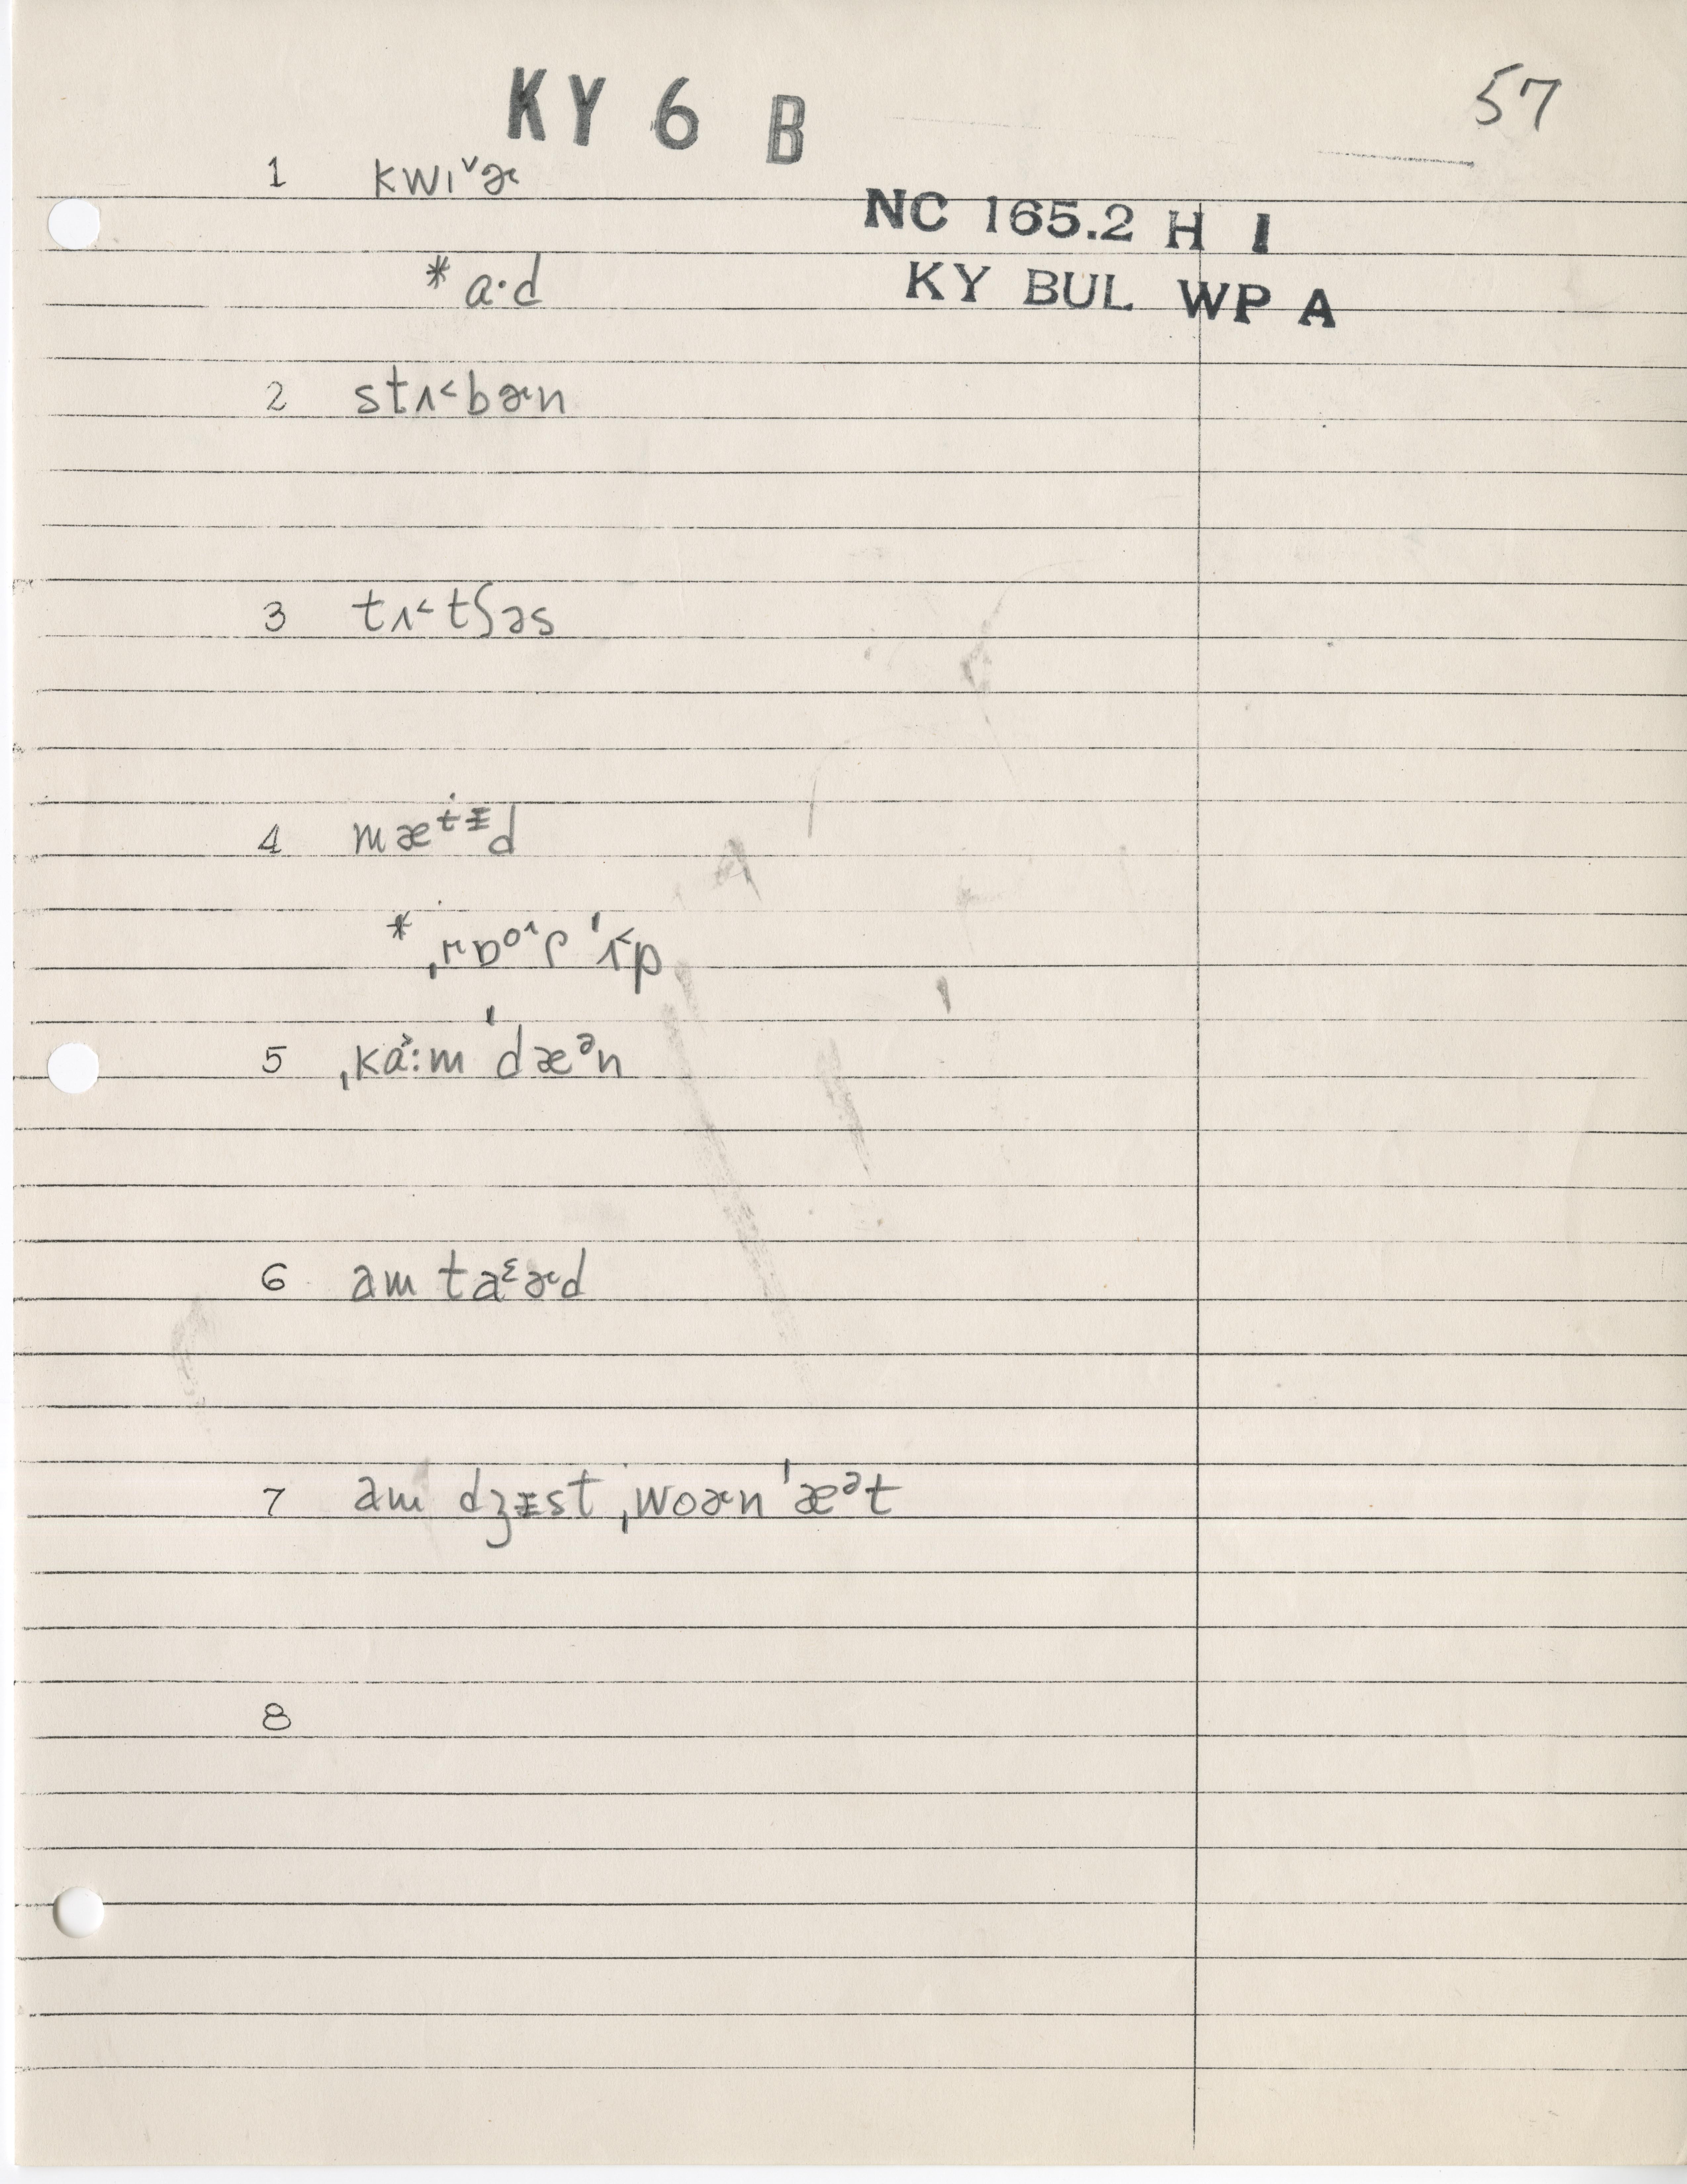 KY 6 B
57
1 kwɪˇɚ
NC 165.2 H I
* ɑ·d
KY BUL WP A
2 stʌ˂bɚn
3 tʌ˂tʃəs
4
*
5 ˌkɑ˃:m ˈdæᵊn
6 am taᵋɚd
7 am dʒɪst ˌwoɚn ˈæᵊt
8